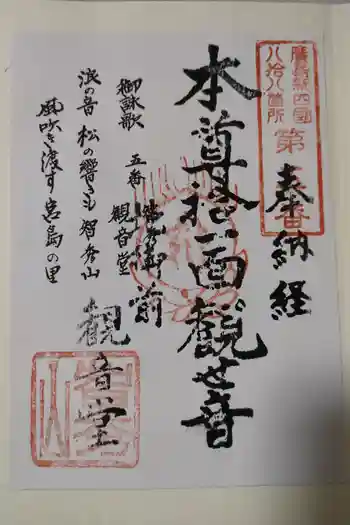 廣島新四國
八拾八箇所
第五番
奉納経
本尊拾一面観世音
御前
御詠歌 五番 観音堂
浪の音 松の響きも 智秀山
風吹き渡す 宮島の里
観音堂